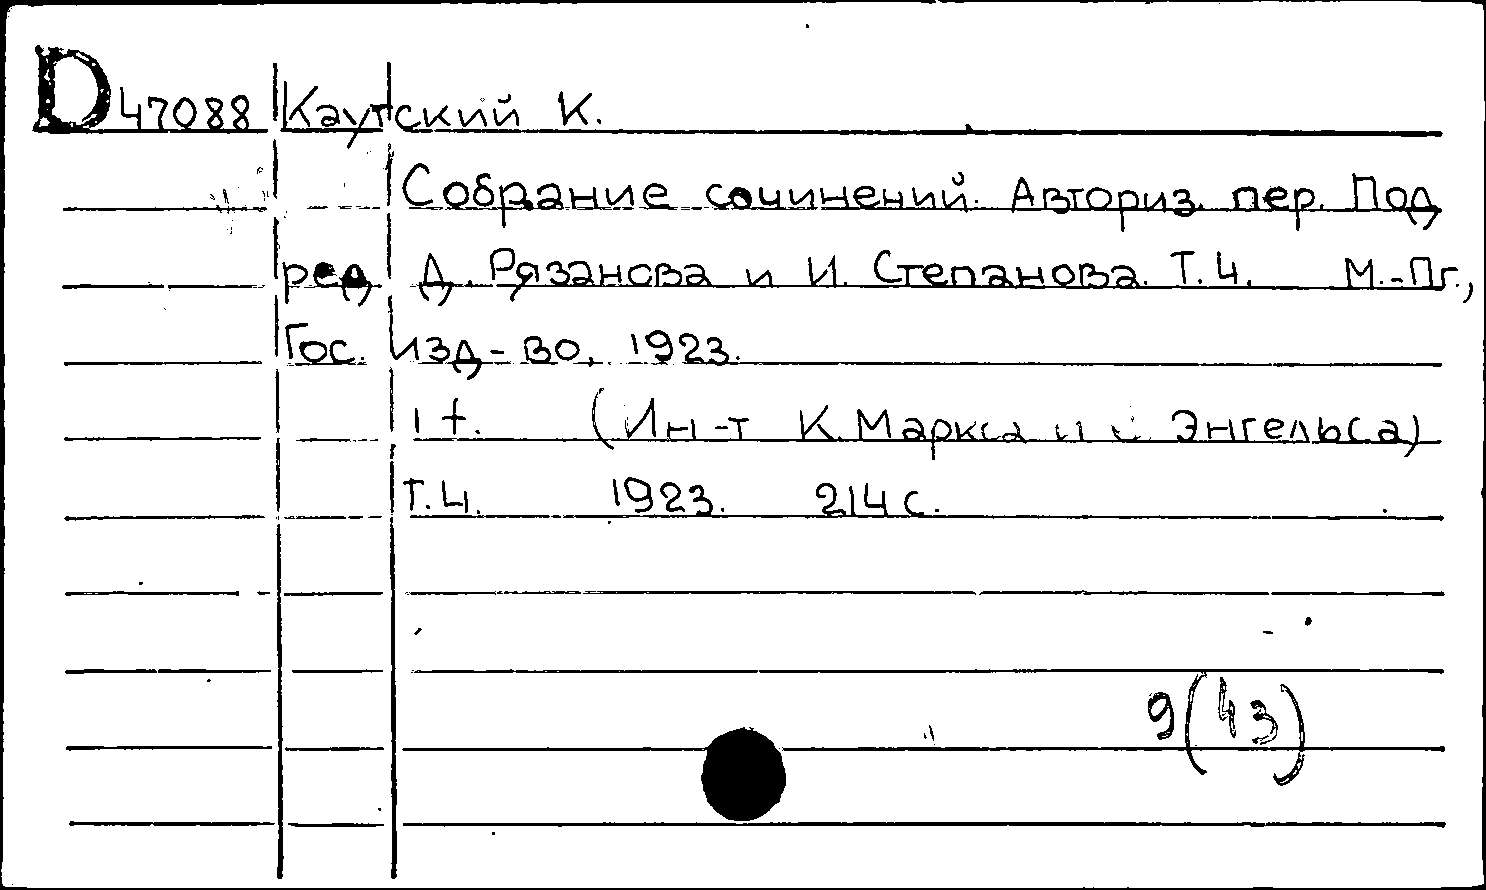 D 47088 Каутский К.
Собрание сочинений. Авториз. пер. Под
ред Д. Рязанова и И. Степанова. Т. 4. М.-Пг.,
Гос. изд-во, 1923.
1 т. (Ин-т К. Маркса и Энгельса)
Т. 4. 1923. 214 с.
9(43)